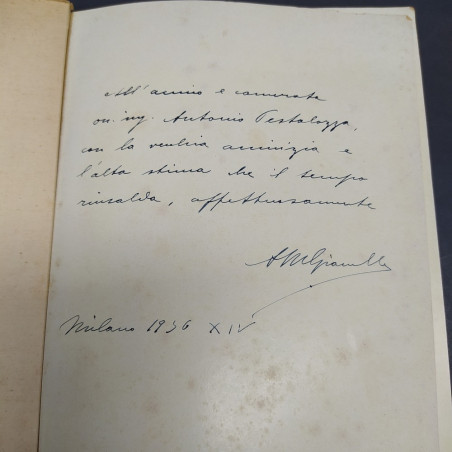 All'amico e camerata
on. ing. Antonio Pestalozza,
con la vecchia amicizia e
l'alta stima che il tempo
rinsalda, affettuosamente
Milano 1936 XIV